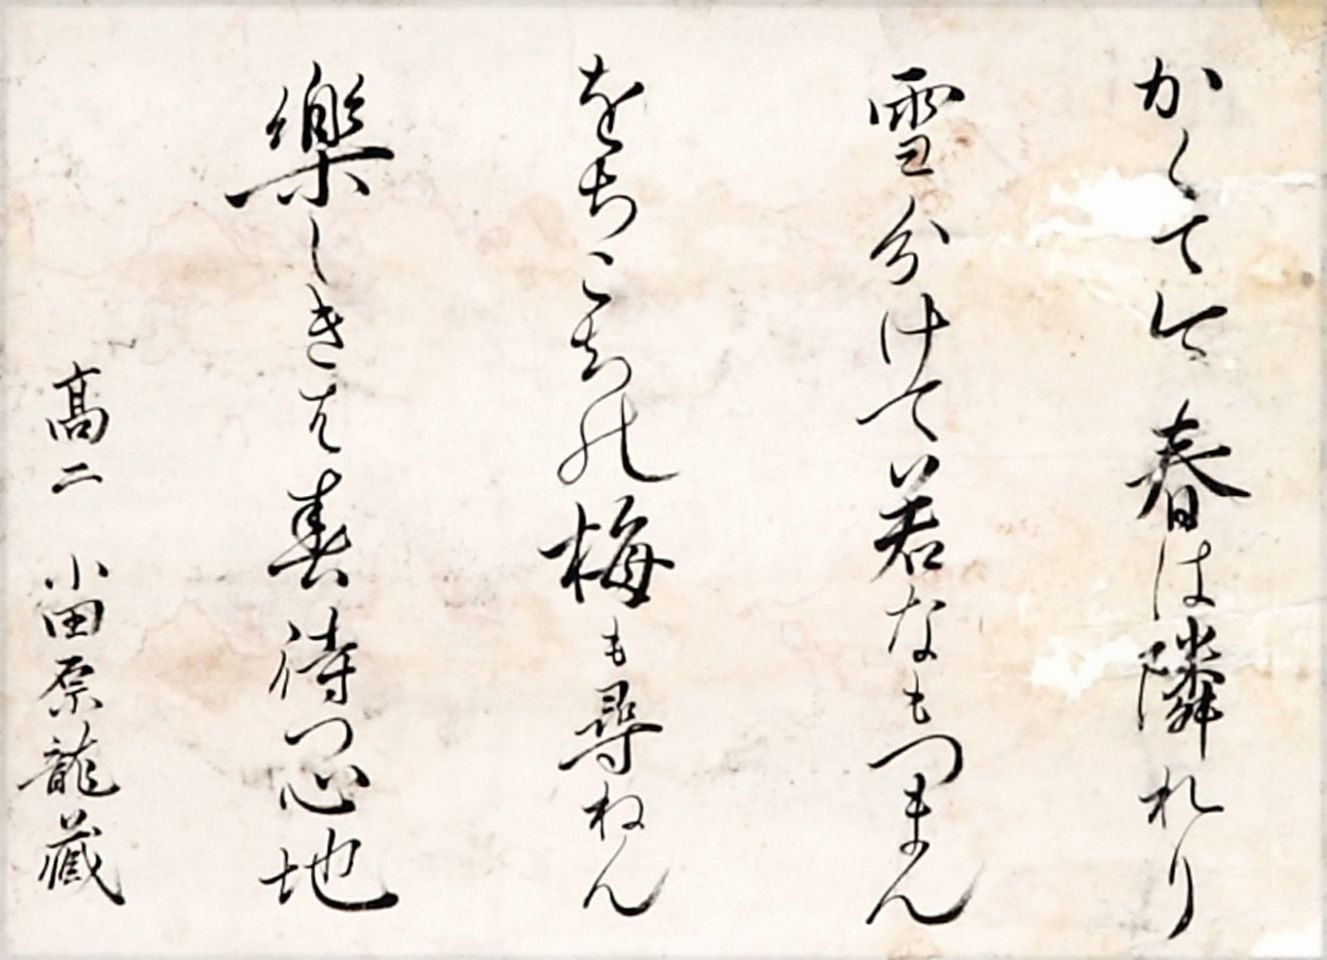 かくて今春は隣れり
雪分けて若なもつまん
をちこちの梅も尋ねん
樂しきは春待つ心地
高二 小田原龍藏